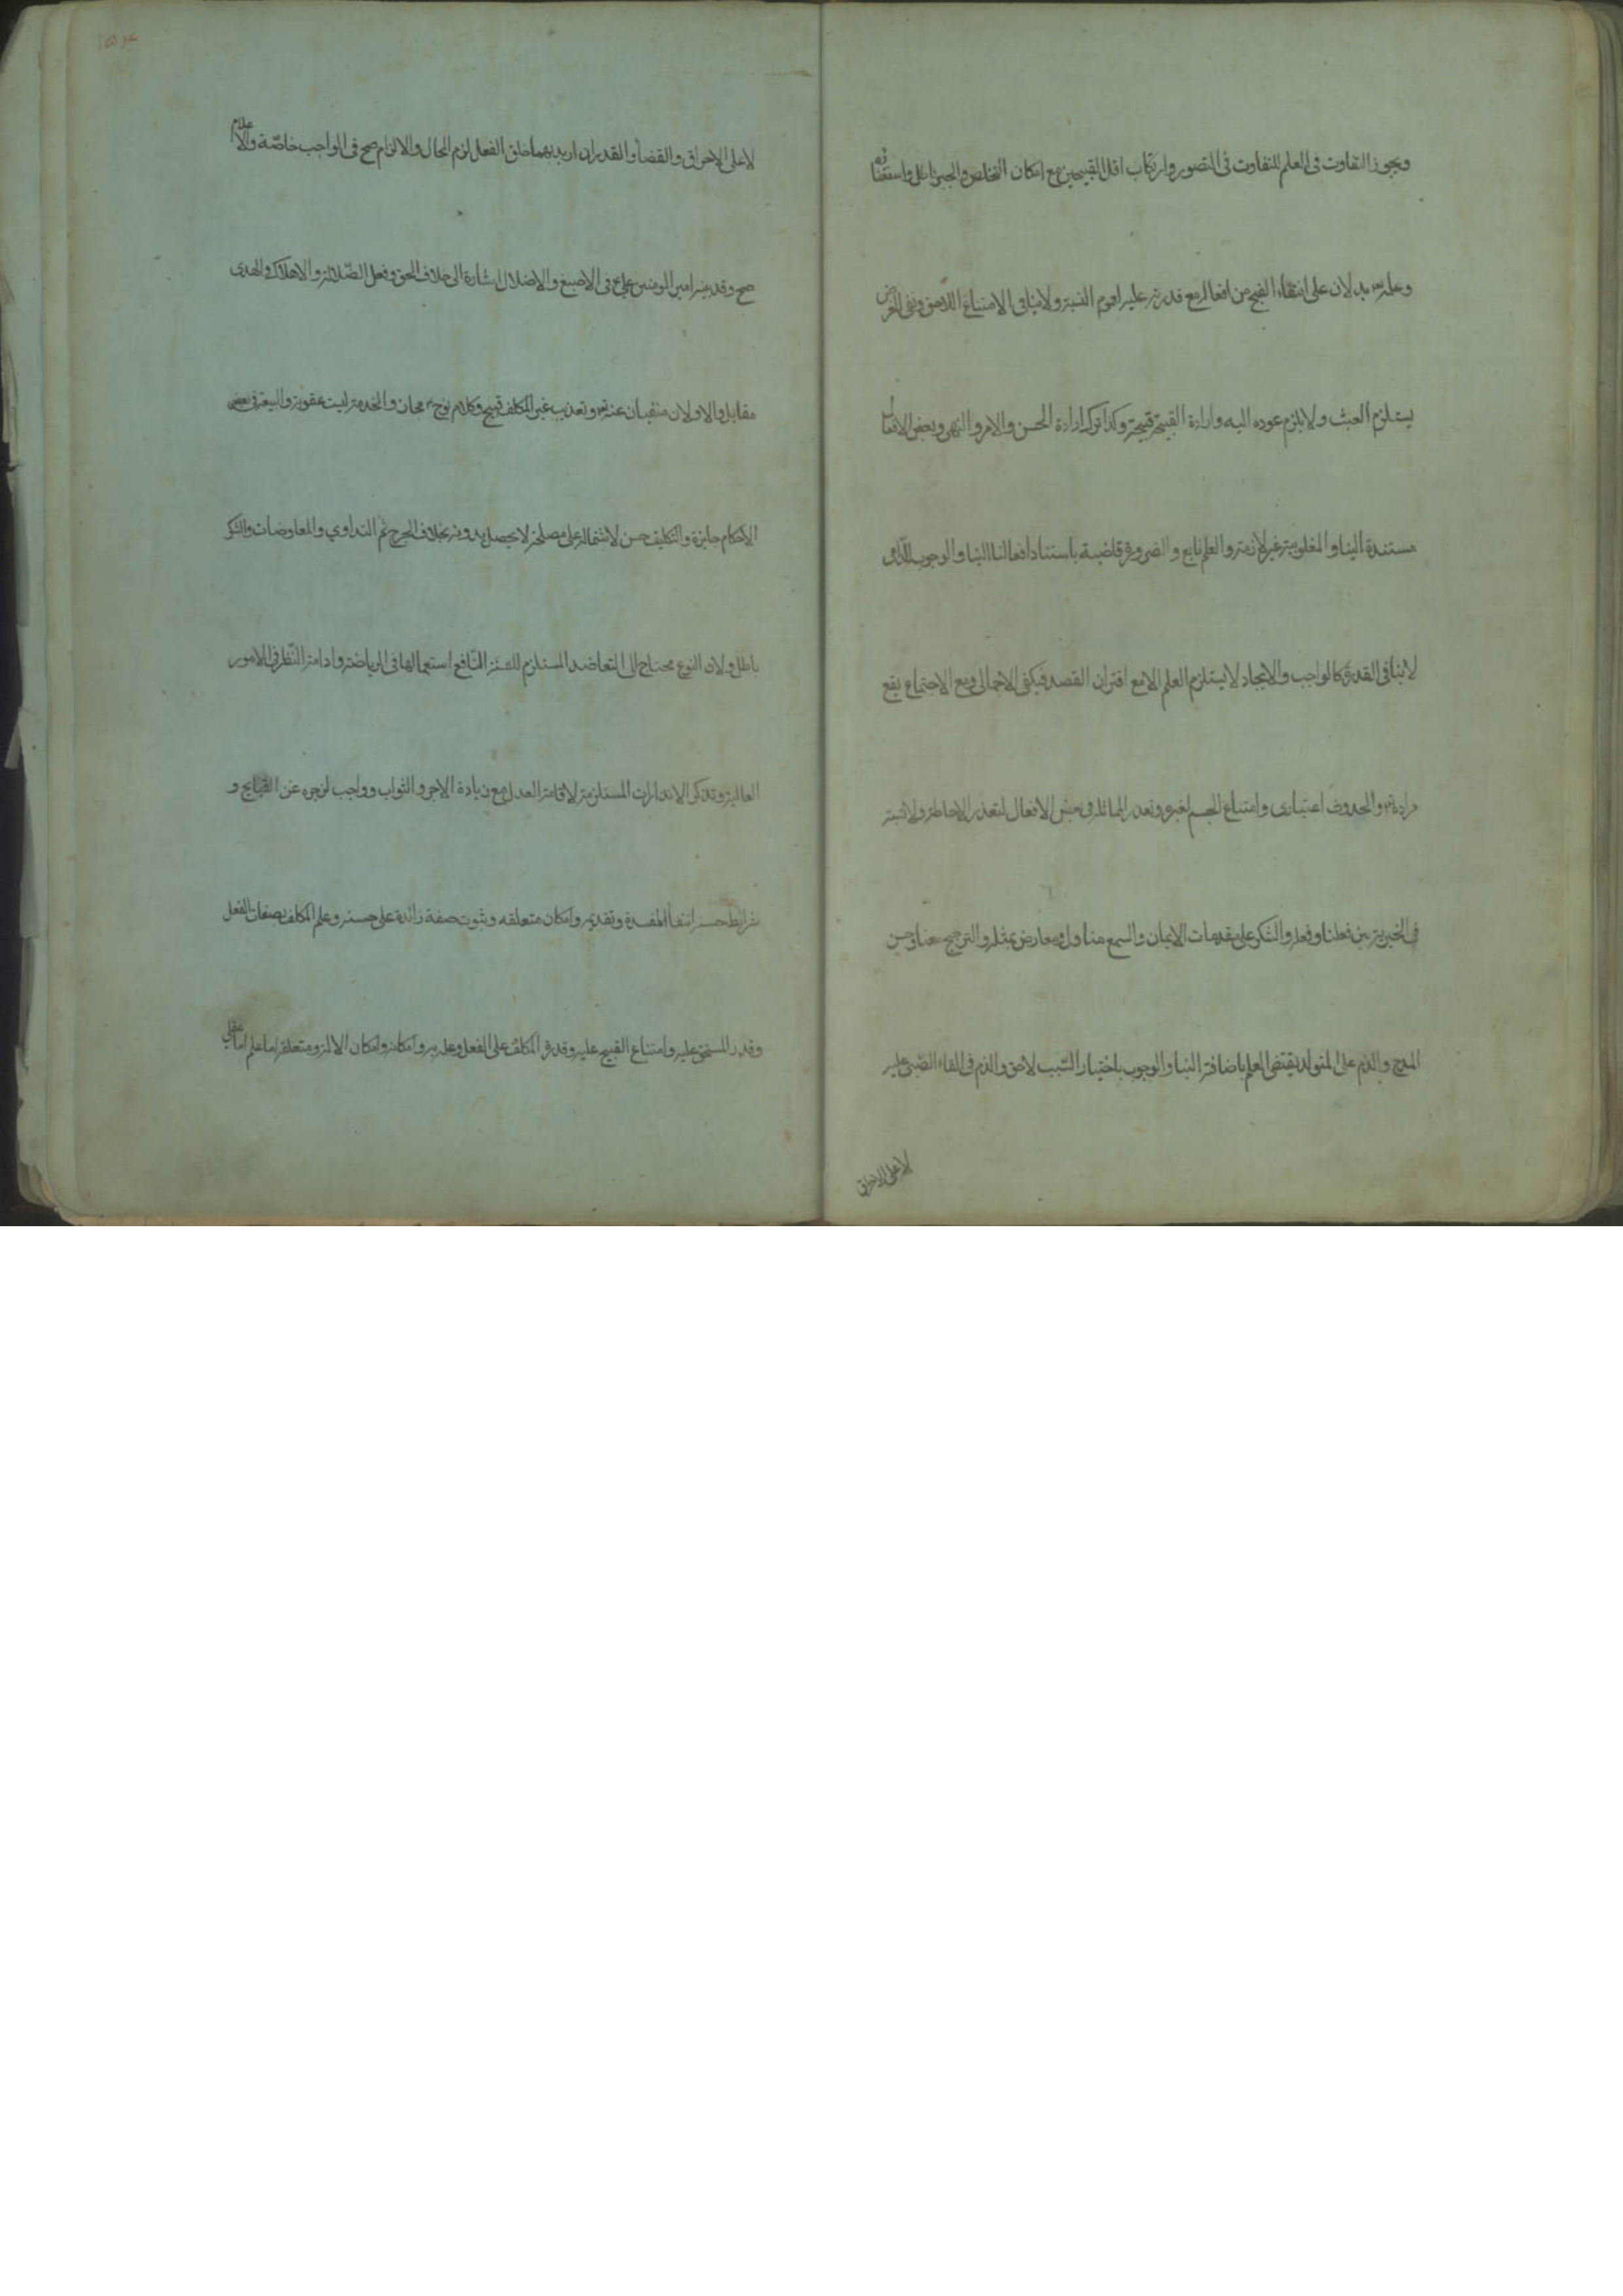 ويجوز التفاوت فى العلم للتفاوت فى التصور وارتكاب اقل القبيحين مع امكان التخلص والجبر باطل واستغناؤه
وعلمه يدلان على انتفاء القبح من افعاله مع قدرته عليه لعموم النسبة ولاينافى الامتناع اللاحق ونفى الغرض
يستلزم العبث ولايلزم عوده اليه وارادة القبيح قبيحة وكذا ترك ارادة الحسن والامر والنهى وبعض الافعال
مستندة الينا والمغلوبية غير لازمة والعلم تابع والضرورة قاضية باستناد افعالنا الينا والوجوب للداعى
لاينافى القدرة كالواجب والايجاد لايستلزم العلم الامع اقتران القصد فيكفى الاجمالى ومع الاجتماع يقع
مراده تع والحدوث اعتبارى وامتناع الجسم لغيره وتعذر المماثلة فى بعض الافعال لتعذر الاحاطة ولانسبة
فى الخيرية بين فعلنا وفعله والشكر على مقدمات الايمان والسمع متاول ومعارض بمثله والترجيح معنا وحسن
المدح والذم على المتولد يقتضى العلم باضافته الينا والوجوب باختيار السبب لاحق والذم فى القاء الصّبى عليه
لاعلى الاحراق
لاعلى الاحراق والقضاء والقدر ان اريد بهما خلق الفعل لزم المحال والالزام صح فى الواجب خاصّة والاعلام
صح وقد بينه امير المومنين على ع فى الاصبغ والاضلال اشارة الى خلاف الحق وفعل الضّلالة والاهلاك والهدى
مقابل والاولان منفيان عنه تع وتعذيب غير المكلف قبيح وكلام نوح ع مجاز والخدمة ليست عقوبة والتبعية فى بعض
الاحكام جايزة والتكليف حسن لاشتماله على مصلحة لاتحصل بدونه بخلاف الجرح ثم التداوى والمعاوضات والشكر
باطل ولان النوع محتاج الى التعاضد المستلزم للسنة النّافع استعمالها فى الرياضة وادامة النّظر فى الامور
العالية وتذكر الانذارات المستلزمة لاقامة العدل مع زيادة الاجر والثواب وواجب لزجره عن القبايح و
شرايط حسنه انتفاء المفسدة وتقديمه وامكان متعلقه وثبوت صفة زائدة على حسنه وعلم المكلف بصفات الفعل
وقدر المستحق عليه وامتناع القبيح عليه وقدرة المكلف على الفعل وعلمه به وامكانه وامكان الالة ومتعلقه اما علم اما عقلى